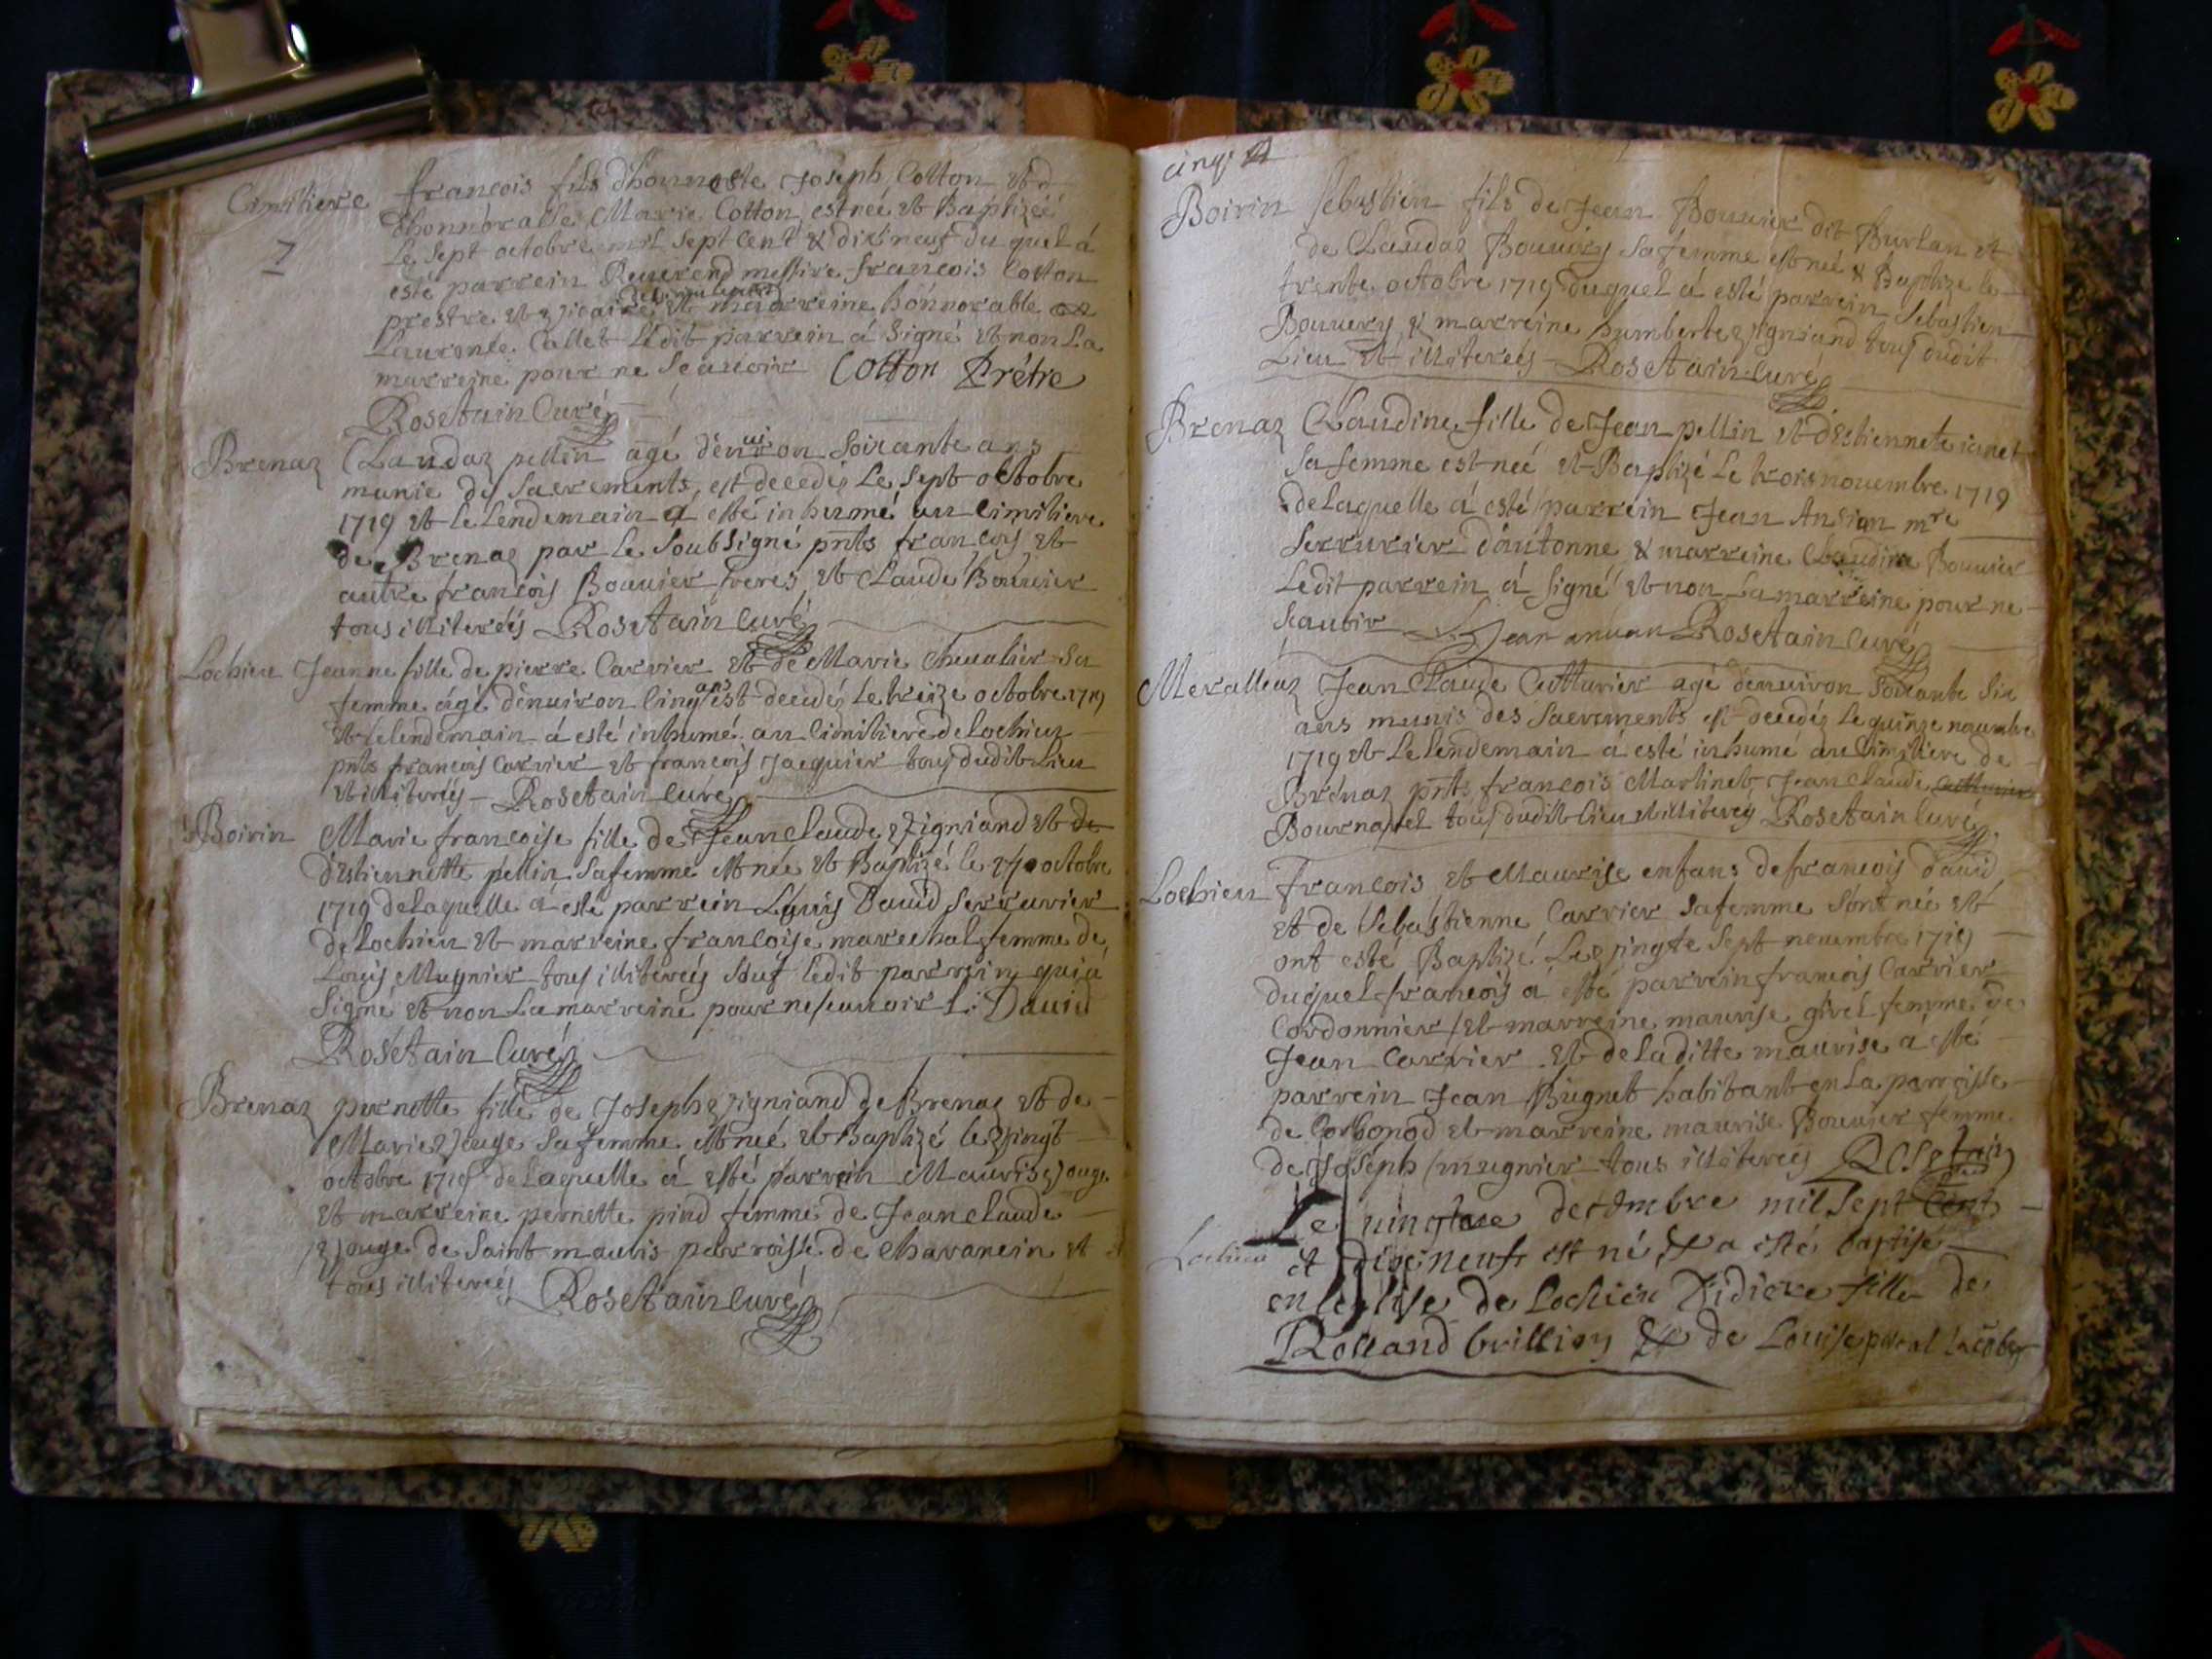 Cimistiere
7
francois fils d'honneste Joseph Cotton et d
d'honnorable Marie Cotton est neé et Baptizeé
Le sept octobre mil sept cent & dix neuf du quel á
esté parrein Reuerend messire francois Cotton
prestre et vicaire et marreine honnorable
Laurence Callet Ledit parrein á signé et non La
marreine pour ne scauoir Cotton Prêtre
Rosetain Curé
Brenaz Claudaz pellin agé d'enuiron soixante ans
munie des sacrements, est decedeé Le sept octobre
1719 et le lendemain a esté inhumé au Cimitiere
de Brenaz par le soubsigné pnts francois et
autre francois Bouuier freres et Claude Bouuier
tous illitereés Rosetain Curé
Lochieu Jeanne fille de pierre Carrier et de Marie Cheualier sa
femme ágé d'enuiron Cinq ans est decedeé Le treize octobre 1719
et le lendemain á esté inhumé au Cimitiere de Lochieu
pnts francois Carrier et francois Jacquier tous dudit Lieu
et illitereés Rosetain Curé
Boirin Marie francoise fille de Jean claude Vigniand et de
d'Estiennette pellin sa femme est neé et Baptizé le octobre
1719 de laquelle á esté parrein Louis Dauid serrurier
de Lochieu et marreine francoise marechal femme de
Louis Mugnier tous illitereés sauf ledit parrein qui á
signé et non La marreine pour ne scauoir L: Dauid
Rosetain Curé
Brenaz pernette fille de Joseph Vigniand de Brenaz et de
Marie Vouge sa femme est neé et baptizé le Vingt
octobre 1719 de Laquelle á esté parrein Mauris Vouge
et marreine pernette pind femme de Jean claude
Vouge de saint mauris parroisse de Chavanein et
tous illitereés Rosetain Curé
cinq
Boirin Sebastien fils de Jean Bouuier dit Burlan et
de Claudaz Bouuery sa femme est neé & Baptize le
trente octobre 1719 duquel á esté parrein Sebastien
Bouuery & marreine humberte Vigniand tous dudit
Lieu et illitereés Rosetain Curé
Brenaz Claudine fille de Jean pellin et d'Estiennete
sa femme est neé et Baptizé Le trois nouembre 1719
de laquelle á esté parrein Jean Ansian mre
serrurier d'autonne & marreine Claudine Bouuier
Ledit parrein á signé et non La marreine pour ne
scauoir Jean Rosetain Curé
Meralleaz Jean Claude Cutturier agé d'enuiron soixante six
ans munis des sacrements est decedé Le quinze nouembre
1719 et Le lendemain á esté inhumé au Cimitiere de
Brenaz pnts francois Martinet Jean Claude
tous dudit lieu et illitereés Rosetain Curé
Lochieu Francois et Maurise enfans de francois Dauid
et de Sebastienne Carrier sa femme sont neé et
ont esté Baptizé Le Vingte sept nouembre 1719
duquel francois á esté parrein francois Carrier
Cordonnier et marreine maurise girel femme de
Jean Carrier et de laditte maurise á esté
parrein Jean Bugnet habitant en La parroisse
de Corbonod et marreine maurise Bouuier femme
de Joseph mugnier tous illitereés Rosetain
Lochieu
Le decembre mil sept Cent
et dixneuf est né & a esté baptisé
en leglise de Lochieu Didiere fille de
Rolland brillion & de Louise